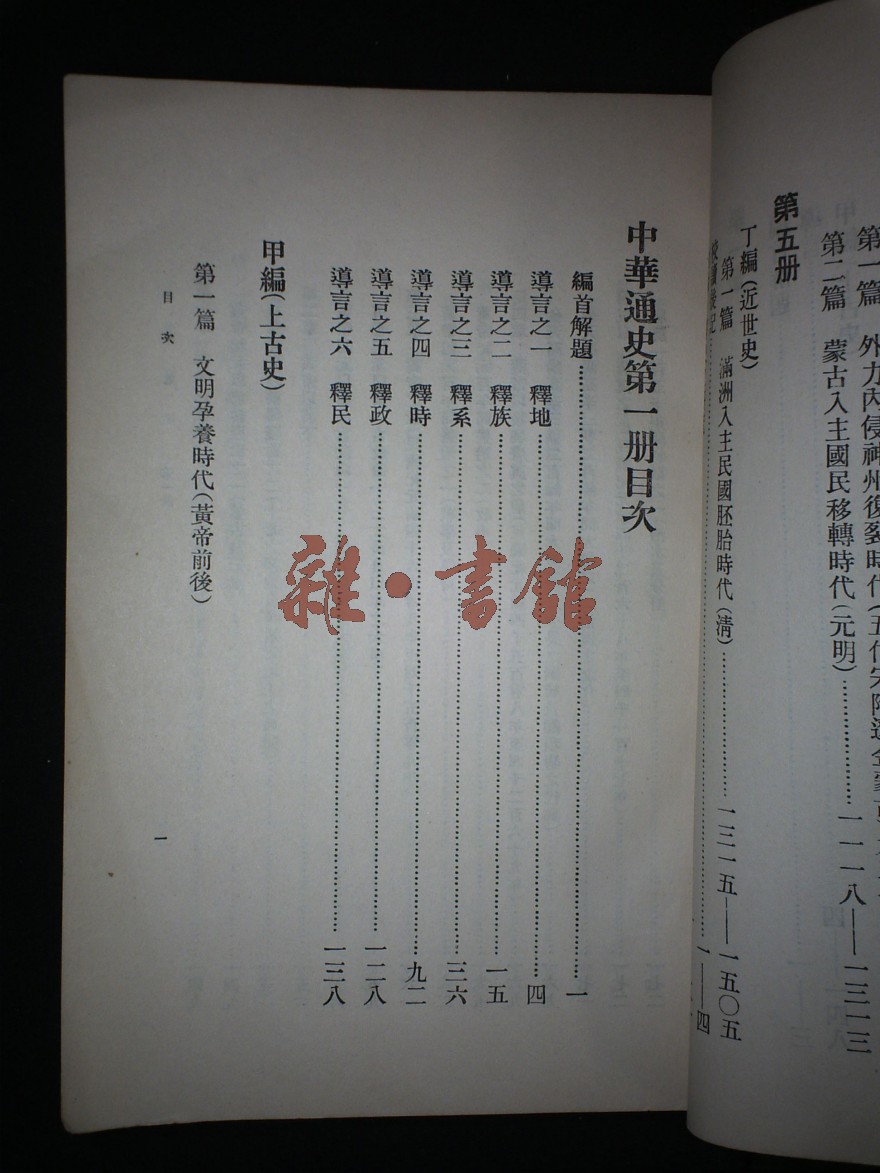 第一篇　外力內侵神州復裂時代(五代宋附遼金
第二篇　蒙古入主國民移轉時代(元明)……一一一八——一三一三
第五册
丁編(近世史)
第一篇　滿洲入主民國胚胎時代(清)……一三一五——一五〇五
……一——四
中華通史第一册目次
編首解題……一
導言之一　釋地……四
導言之二　釋族……一五
導言之三　釋系……三六
導言之四　釋時……九二
導言之五　釋政……一二八
導言之六　釋民……一三八
甲編(上古史)
第一篇　文明孕養時代(黃帝前後)
目次
一
雜·書館